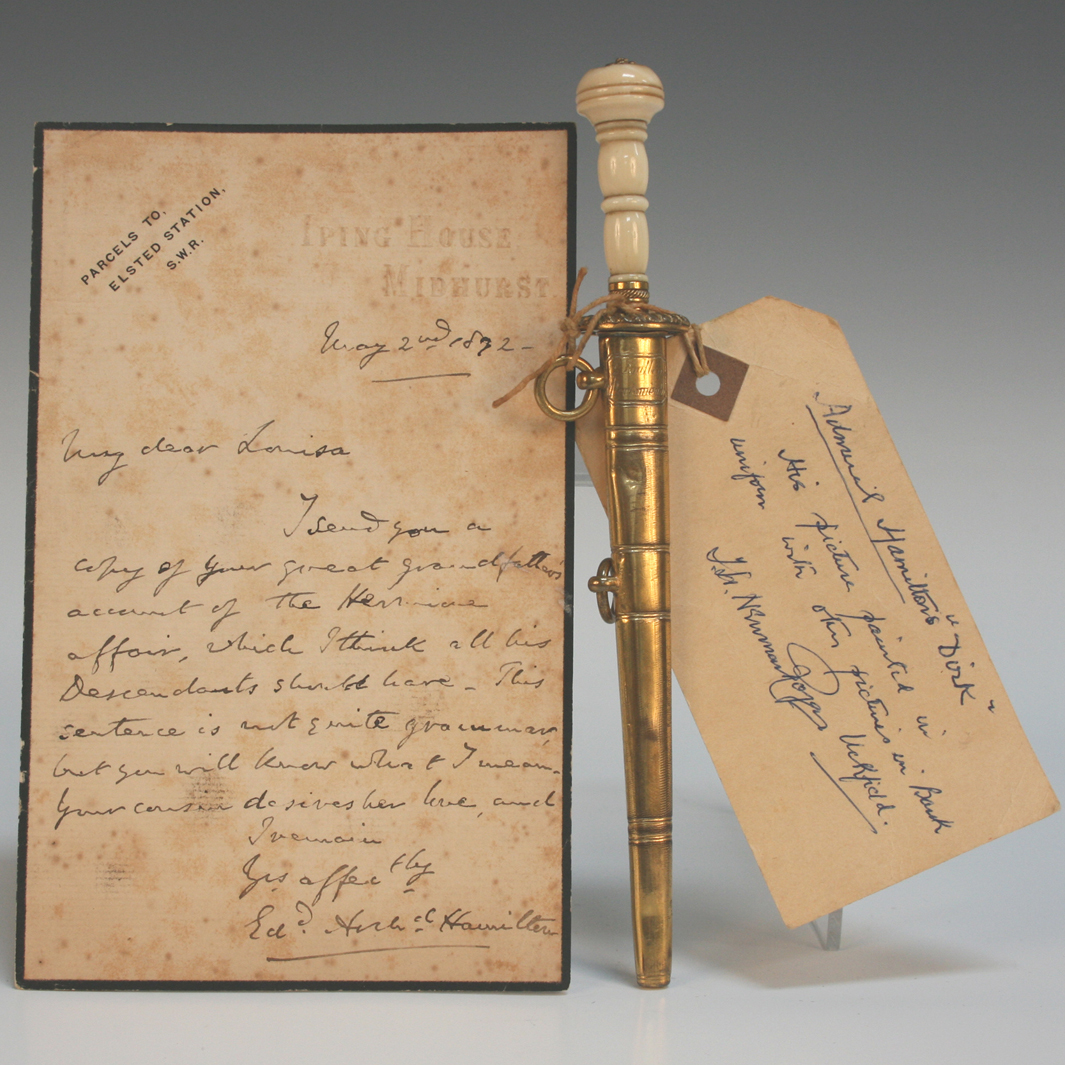 PARCELS TO,
ELSTED STATION,
S.W.R.
IPING HOUSE
MIDHURST
May 2nd 1892-
My dear Louisa
I send you a
copy of your great grandfather's
account of the Hermione
affair, which I think all his
Descendants should have - This
sentence is not quite grammar,
but you will know what I mean.
Your cousin desires her love, and
I remain
Yrs affectly
Edd. Archd Hamilton
Admiral Hamilton's "Dirk"
His picture painted in
uniform with other pictures in Bank
Uckfield.